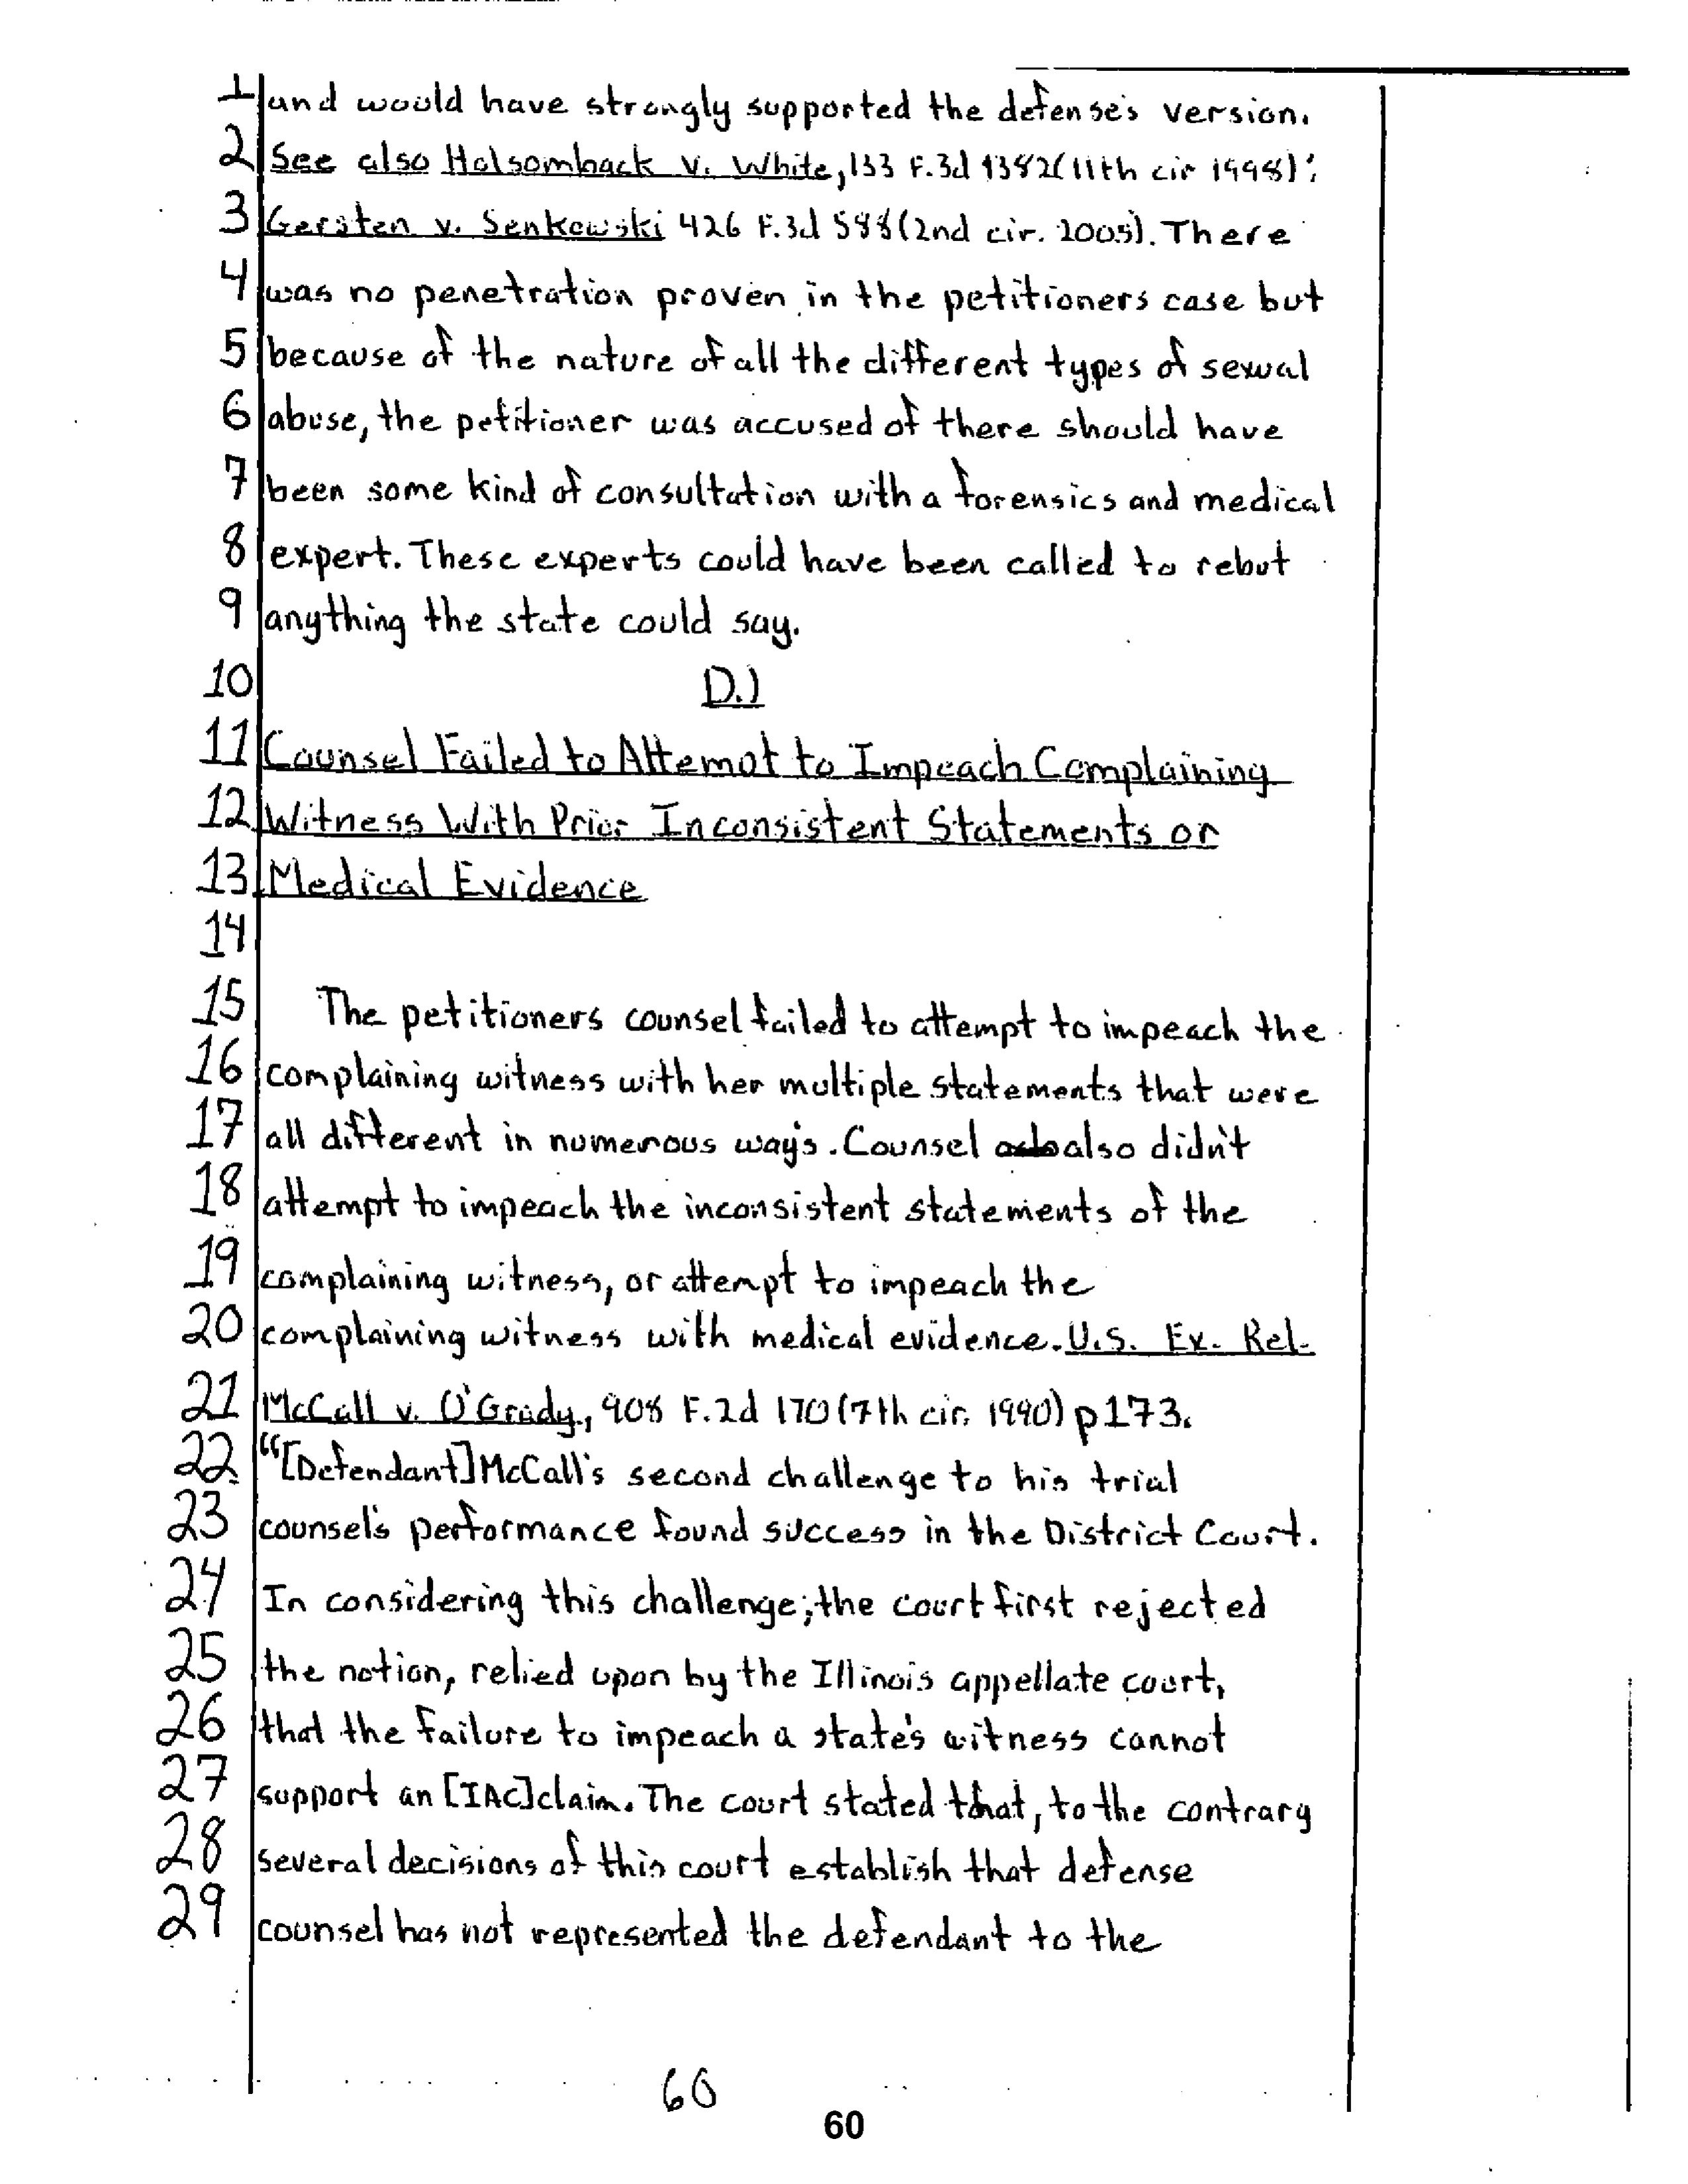 1 and would have strongly supported the defense's version.
2 See also Holsomback v. White, 133 F.3d 1382 (11th cir 1998);
3 Gersten v. Senkowski 426 F.3d 588 (2nd cir. 2005). There
4 was no penetration proven in the petitioners case but
5 because of the nature of all the different types of sexual
6 abuse, the petitioner was accused of there should have
7 been some kind of consultation with a forensics and medical
8 expert. These experts could have been called to rebut
9 anything the state could say.
10 D.)
11 Counsel Failed to Attempt to Impeach Complaining
12 Witness With Prior Inconsistent Statements or
13 Medical Evidence
14
15 The petitioners counsel failed to attempt to impeach the
16 complaining witness with her multiple statements that were
17 all different in numerous way's. Counsel also didn't
18 attempt to impeach the inconsistent statements of the
19 complaining witness, or attempt to impeach the
20 complaining witness with medical evidence. U.S. Ex. Rel.
21 McCall v. O'Grady, 908 F.2d 170 (7th cir. 1990) p173.
22 "[Defendant] McCall's second challenge to his trial
23 counsel's performance found success in the District Court.
24 In considering this challenge; the court first rejected
25 the notion, relied upon by the Illinois appellate court,
26 that the failure to impeach a state's witness cannot
27 support an [IAC] claim. The court stated that, to the contrary
28 several decisions of this court establish that defense
29 counsel has not represented the defendant to the
60
60